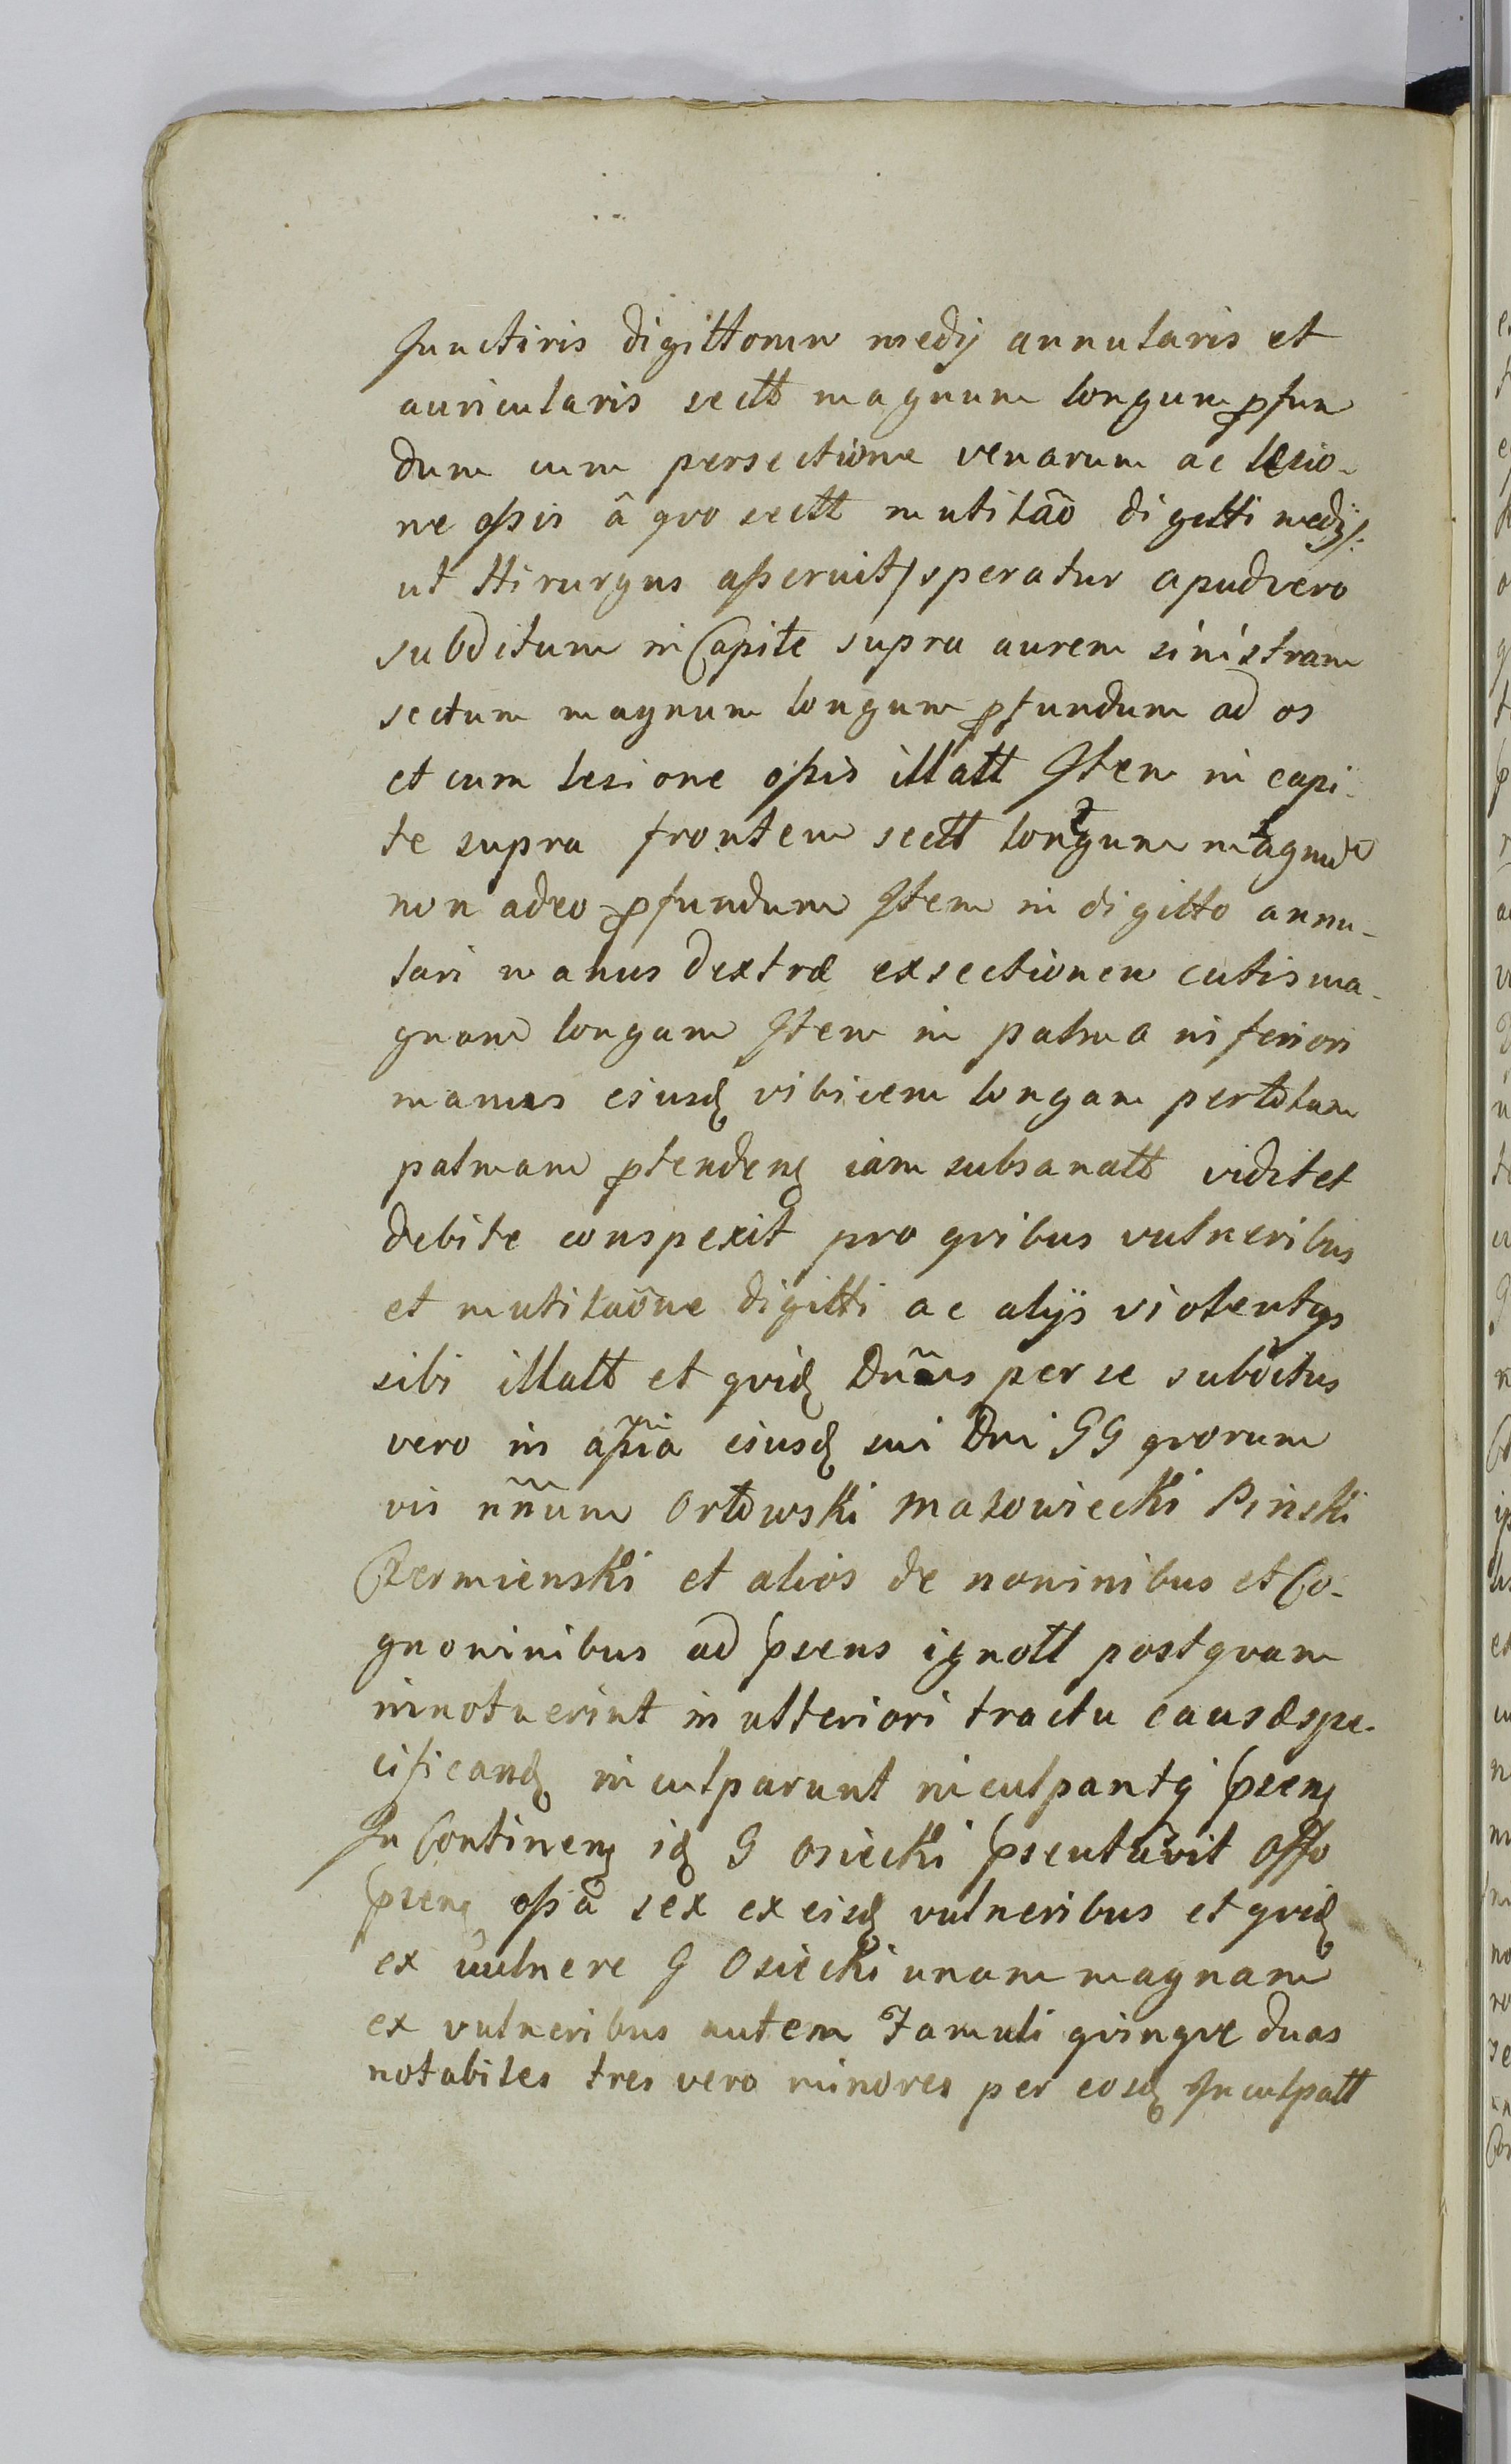 Junctiris digittorum medij annularis et
auricularis sectt magnum longum ꝓfun
dum cum persectione venarum ac lesio-
ne oßis â qvo sectt mutilão digitti medij /:
ut Hirurgus aßeruit / speratur apud vero
subditum in Capite supra aurem sinistram
sectum magnum longum ꝓfundum ad os
et cum lesione oßis illatt Item in capi-
te supra frontem sectt longum magnum
non adeo ꝓfundum Item in digitto annu-
lari manus dextræ exsectionem cutis ma-
gnam longam Item in palma inferiori
manus eiusdꝫ vibicem longam per totam
palmam ꝓtendenꝫ iam subsanatt vidit et
debite conspexit pro qvibus vulneribus
et mutilaõne digitti ac alijs violentijs
sibi illatt et qvidꝫ Dñus per se subditus
vero in aßia eiusdꝫ sui Dni GG qvorum
vis nñum Orłowski Mazowiecki Pinski
Czermienski et alios de nominibus et Co-
gnominibus ad psens ignott postqvam
innotuerint in ulteriori tractu causæ spe-
cificandꝫ inculparunt inculpantqꝫ psenꝫ
In Continenꝫ idꝫ G Osiecki psentavit Offo
psenꝫ oßa sex ex eisdꝫ vulneribus et qvidꝫ
ex vulnere G Osiecki unam magnam
ex vulneribus autem Famuli qvinqve duas
notabiles tres vero minores per eosdꝫ Inculpatt